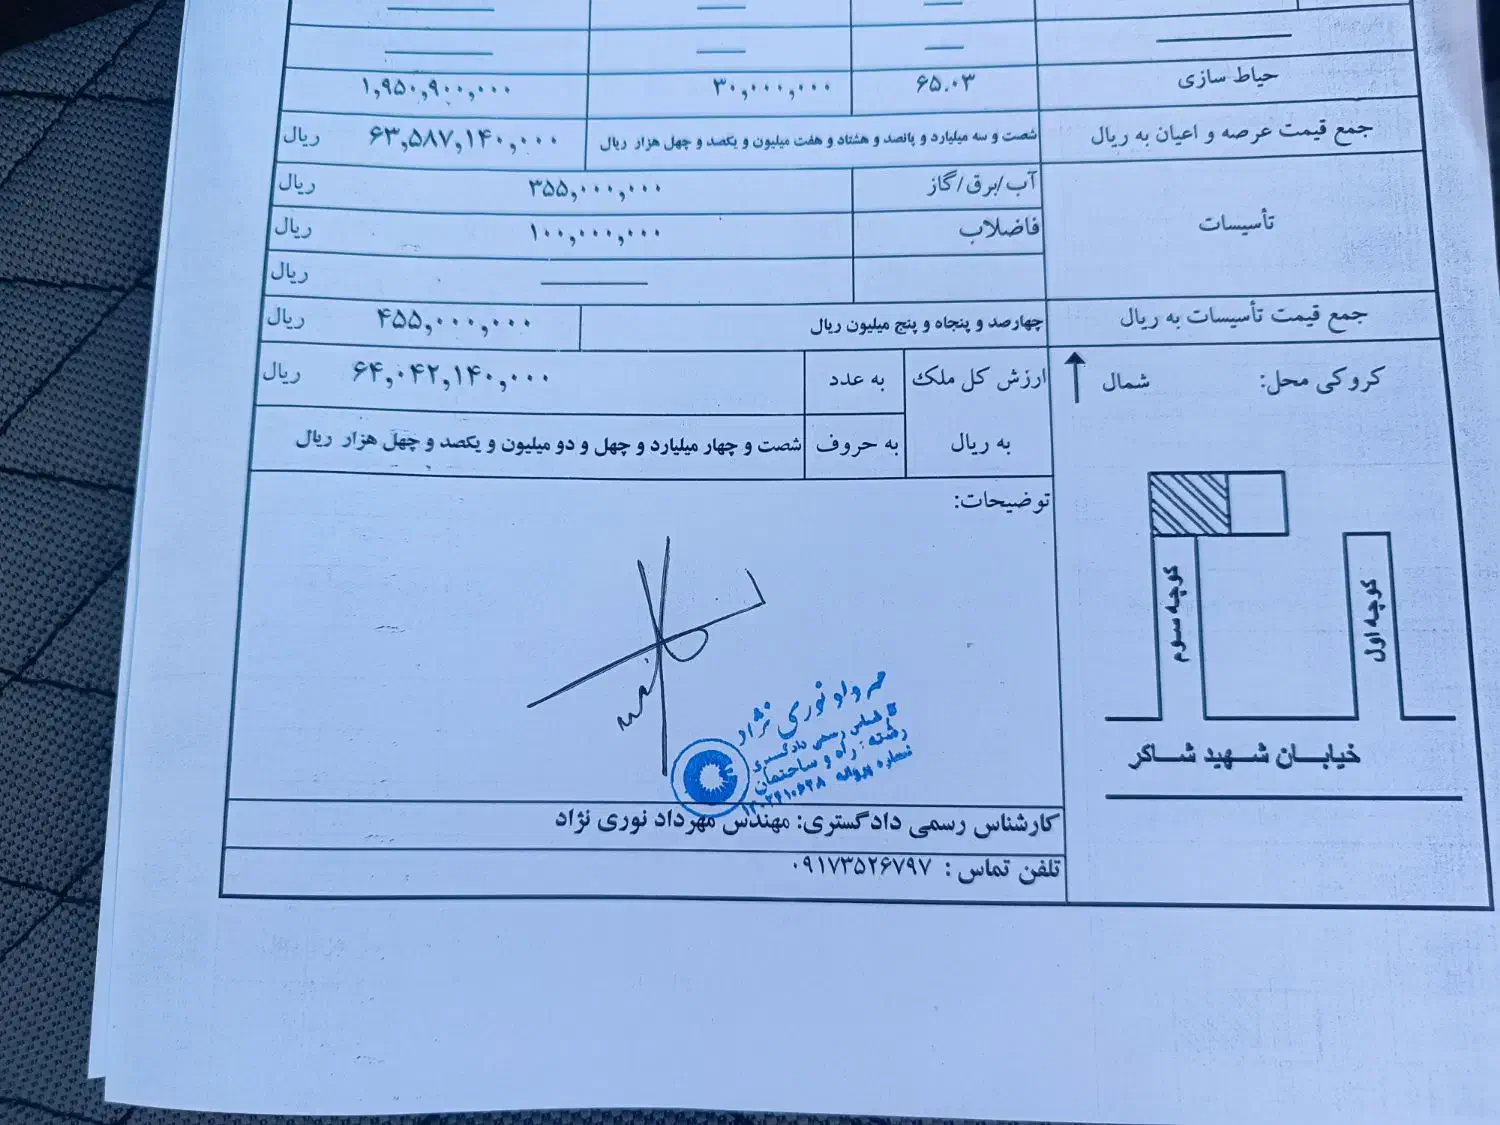 حیاط سازی ۶۵.۰۳ ۳۰,۰۰۰,۰۰۰ ۱,۹۵۰,۹۰۰,۰۰۰
جمع قیمت عرصه و اعیان به ریال شصت و سه میلیارد و پانصد و هشتاد و هفت میلیون و یکصد و چهل هزار ریال ۶۳,۵۸۷,۱۴۰,۰۰۰ ریال
تأسیسات
آب/برق/گاز ۳۵۵,۰۰۰,۰۰۰ ریال
فاضلاب ۱۰۰,۰۰۰,۰۰۰ ریال
ریال
جمع قیمت تأسیسات به ریال چهارصد و پنجاه و پنج میلیون ریال ۴۵۵,۰۰۰,۰۰۰ ریال
کروکی محل: شمال
ارزش کل ملک به عدد ۶۴,۰۴۲,۱۴۰,۰۰۰ ریال
به ریال به حروف شصت و چهار میلیارد و چهل و دو میلیون و یکصد و چهل هزار ریال
توضیحات:
کوچه سوم
کوچه اول
خیابان شهید شاکر
مهرداد نوری نژاد
کارشناس رسمی دادگستری
رشته: راه و ساختمان
شماره پروانه
کارشناس رسمی دادگستری: مهندس مهرداد نوری نژاد
تلفن تماس : ۰۹۱۷۳۵۲۶۷۹۷